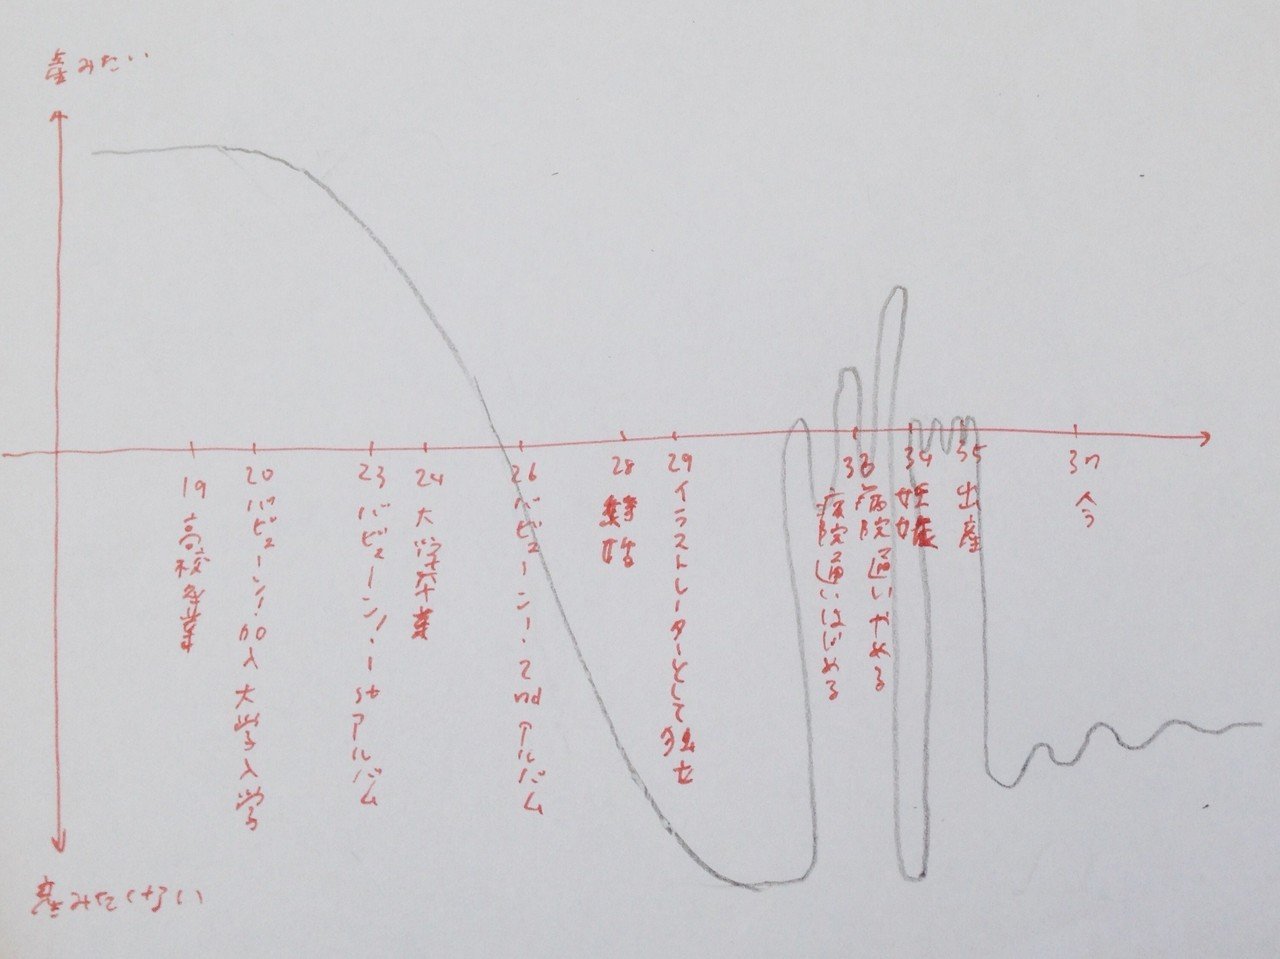 産みたい
19 高校卒業
20 バビューン!加入 大学入学
23 バビューン!・1stアルバム
24 大学卒業
26 バビューン!・2ndアルバム
28 結婚
29 イラストレーターとして独立
33 病院通いはじめる
病院通いやめる
34 妊娠
35 出産
37 今
産みたくない